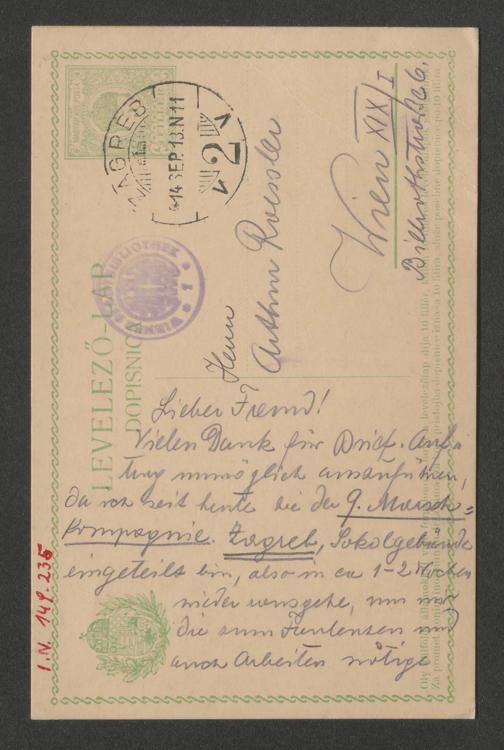 LEVELEZŐ-LAP
DOPISNICA
ZAGREB
914 SEP. 13. N 11
2
Herrn
Arthur Roessler
Wien XIX/I
Billrothstraße 6.
BIBLIOTHEK
WIEN
1
Lieber Freund!
Vielen Dank für Brief. Auf-
trag unmöglich auszuführen,
da ich seit heute bei der 9. Marsch-
Kompagnie. Zagreb, Sokolgebäude
eingeteilt bin, also in ca 1-2 Wochen
wieder
die zum
auch Arbeiten nötige
I.N. 149.235